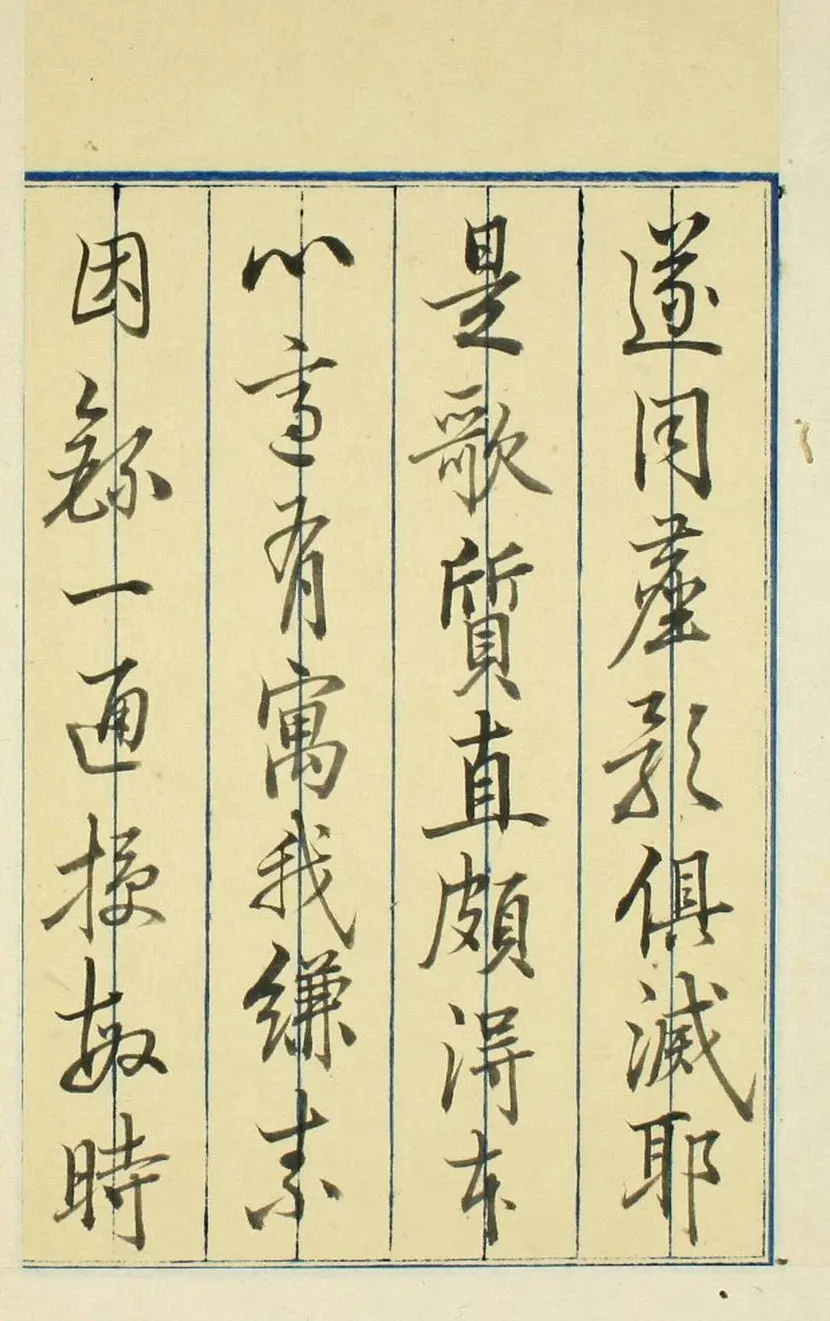 遂同塵影俱滅耶
是歌質直頗得本
心有寓我縑素
因錄一通授敏時